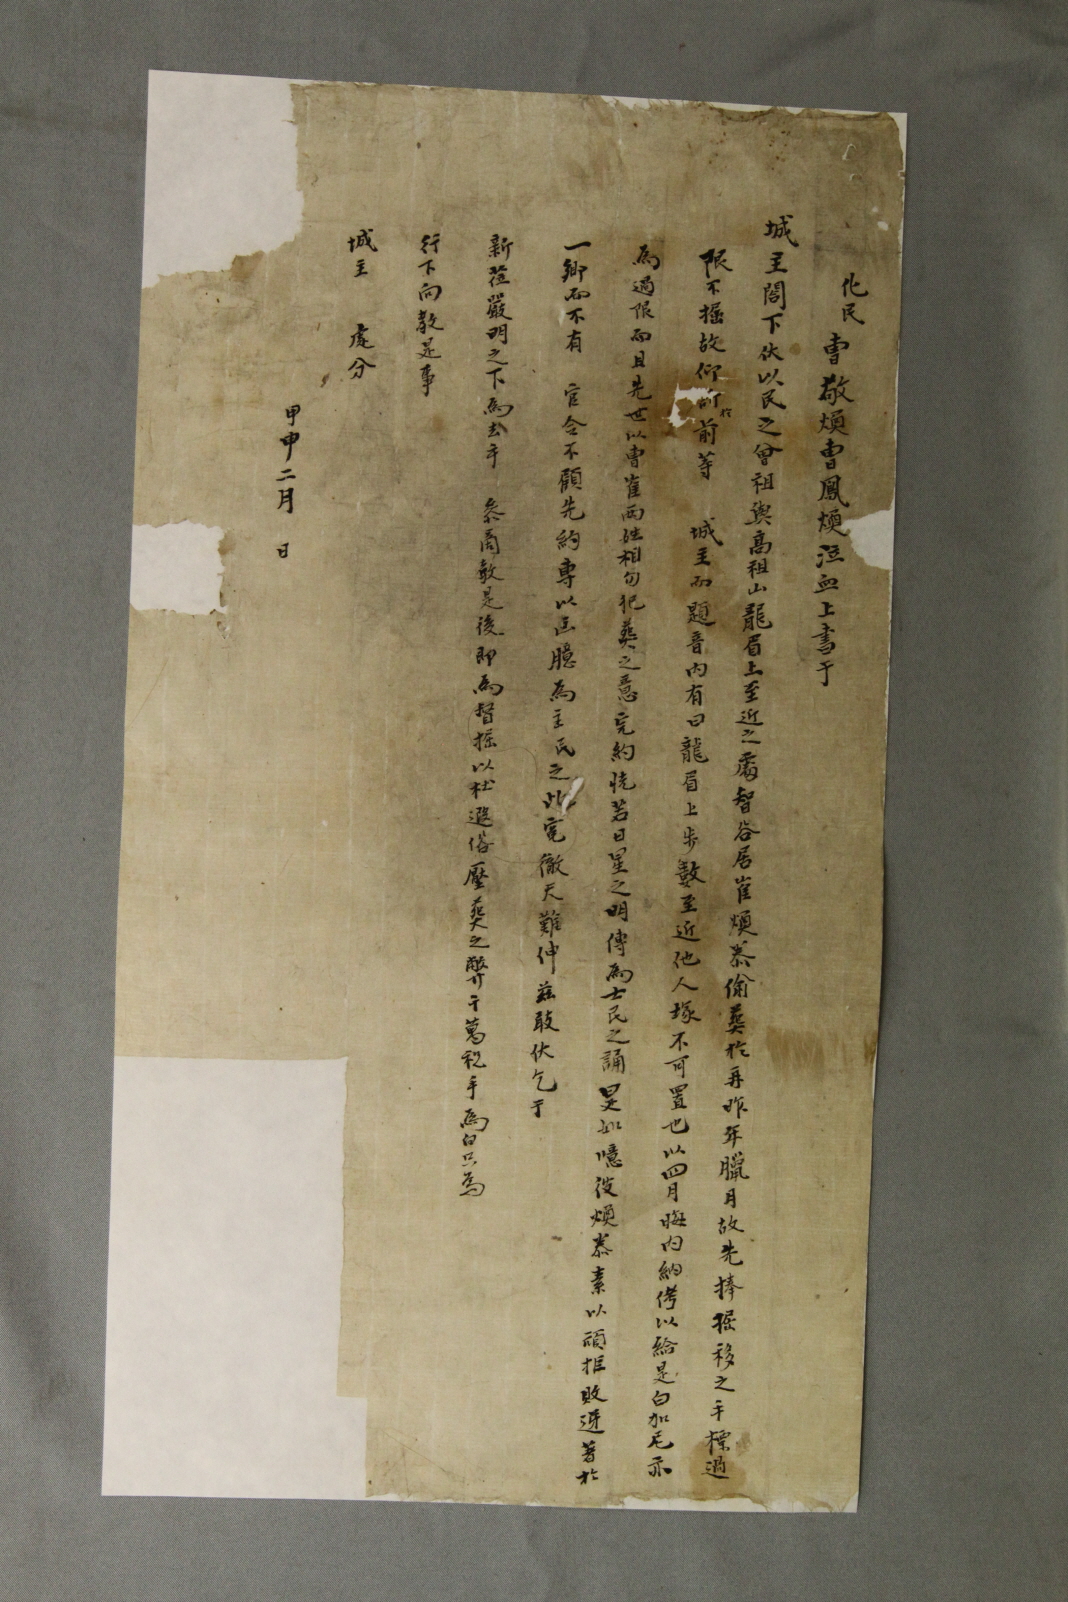 化民 曺敬煥曺鳳煥泣血上書于
城主閤下伏以民之曾祖與高祖山龍眉上至近之處智谷居崔煥泰偸葬於再昨年臘月故先捧掘移之手標過
限不掘故仰 於前等 城主而題音內有曰龍眉上步數至近他人塚不可置也以四月晦內納侤以給是白加尼亦
為過限而且先世以曺崔兩姓相勿犯葬之意完約恍若日星之明傳為士民之誦是如噫彼煥泰素以頑拒敗逆著於
一鄕而不有 官令不顧先約專以 臆為主民之此寃徹天難伸玆敢伏乞于
新莅嚴明之下為去乎 參商敎是後即為督掘以杜 壓葬之弊千萬祝手為白只為
行下向敎是事
城主 處分
甲申二月 日